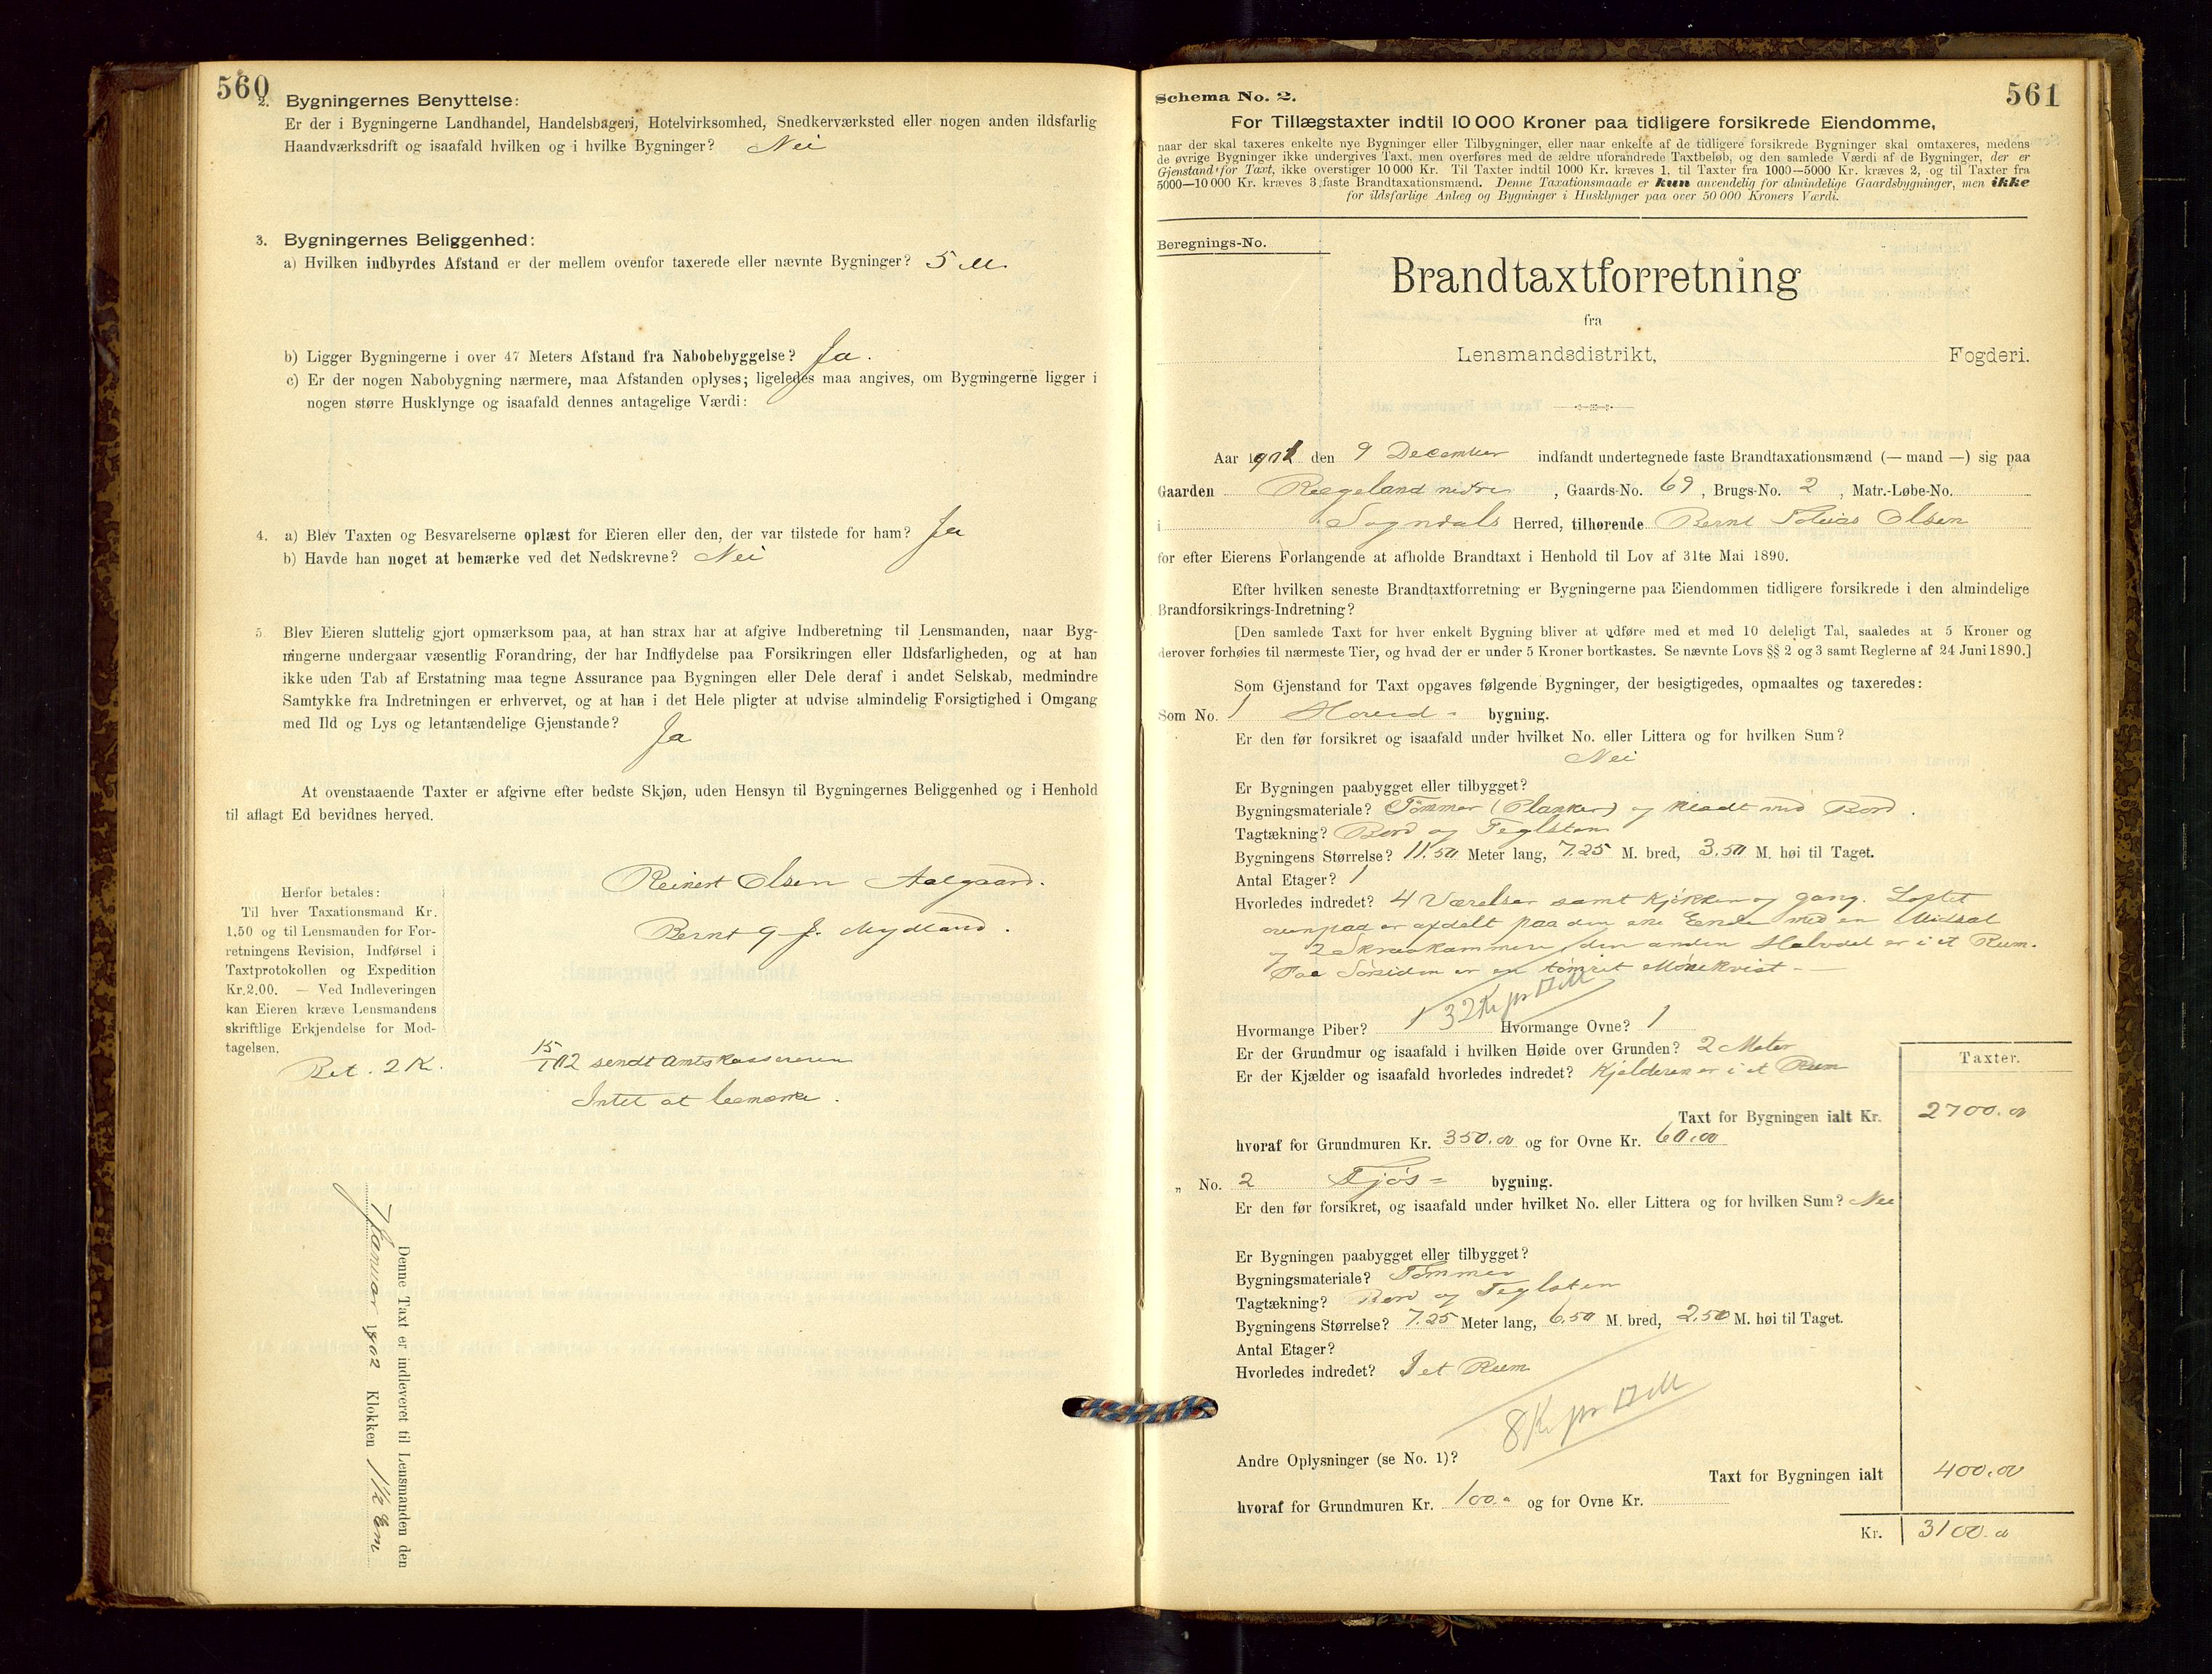 560
2. Bygningernes Benyttelse:
Er der i Bygningerne Landhandel, Handelsbageri, Hotelvirksomhed, Snedkerværksted eller nogen anden ildsfarlig
Haandværksdrift og isaafald hvilken og i hvilke Bygninger? Nei
3. Bygningernes Beliggenhed:
a) Hvilken indbyrdes Afstand er der mellem ovenfor taxerede eller nævnte Bygninger? 5 M
b) Ligger Bygningerne i over 47 Meters Afstand fra Nabobebyggelse? Ja.
c) Er der nogen Nabobygning nærmere, maa Afstanden oplyses; ligeledes maa angives, om Bygningerne ligger i
nogen større Husklynge og isaafald dennes antagelige Værdi:
4. a) Blev Taxten og Besvarelserne oplæst for Eieren eller den, der var tilstede for ham? Ja
b) Havde han noget at bemærke ved det Nedskrevne? Nei
5. Blev Eieren sluttelig gjort opmærksom paa, at han strax har at afgive Indberetning til Lensmanden, naar Byg-
ningerne undergaar væsentlig Forandring, der har Indflydelse paa Forsikringen eller Ildsfarligheden, og at han
ikke uden Tab af Erstatning maa tegne Assurance paa Bygningen eller Dele deraf i andet Selskab, medmindre
Samtykke fra Indretningen er erhvervet, og at han i det Hele pligter at udvise almindelig Forsigtighed i Omgang
med Ild og Lys og letantændelige Gjenstande? Ja
At ovenstaaende Taxter er afgivne efter bedste Skjøn, uden Hensyn til Bygningernes Beliggenhed og i Henhold
til aflagt Ed bevidnes herved.
Reinert Olsen Aalgaard.
Bernt G. J. Mydland.
Herfor betales:
Til hver Taxationsmand Kr.
1,50 og til Lensmanden for For-
retningens Revision, Indførsel i
Taxtprotokollen og Expedition
Kr.2,00. — Ved Indleveringen
kan Eieren kræve Lensmandens
skriftlige Erkjendelse for Mod-
tagelsen.
Bet. 2 K.
15/1 02 sendt Amtskassereren
Intet at bemærke.
Denne Taxt er indleveret til Lensmanden den
7 Januar 1902 Klokken 1½ Em
561
Schema No. 2.
For Tillægstaxter indtil 10 000 Kroner paa tidligere forsikrede Eiendomme,
naar der skal taxeres enkelte nye Bygninger eller Tilbygninger, eller naar enkelte af de tidligere forsikrede Bygninger skal omtaxeres, medens
de øvrige Bygninger ikke undergives Taxt, men overføres med de ældre uforandrede Taxtbeløb, og den samlede Værdi af de Bygninger, der er
Gjenstand for Taxt, ikke overstiger 10 000 Kr. Til Taxter indtil 1000 Kr. kræves 1, til Taxter fra 1000—5000 Kr. kræves 2, og til Taxter fra
5000—10 000 Kr. kræves 3 faste Brandtaxationsmænd. Denne Taxationsmaade er kun anvendelig for almindelige Gaardsbygninger, men ikke
for ildsfarlige Anlæg og Bygninger i Husklynger paa over 50 000 Kroners Værdi.
Beregnings-No.
Brandtaxtforretning
fra
Lensmandsdistrikt, Fogderi.
Aar 1901 den 9 December indfandt undertegnede faste Brandtaxationsmænd (— mand —) sig paa
Gaarden Rægeland nedre, Gaards-No. 69, Brugs-No. 2, Matr.-Løbe-No.
i Sogndals Herred, tilhørende Bernt Tobias Olsen
for efter Eierens Forlangende at afholde Brandtaxt i Henhold til Lov af 31te Mai 1890.
Efter hvilken seneste Brandtaxtforretning er Bygningerne paa Eiendommen tidligere forsikrede i den almindelige
Brandforsikrings-Indretning?
[Den samlede Taxt for hver enkelt Bygning bliver at udføre med et med 10 deleligt Tal, saaledes at 5 Kroner og
derover forhøies til nærmeste Tier, og hvad der er under 5 Kroner bortkastes. Se nævnte Lovs §§ 2 og 3 samt Reglerne af 24 Juni 1890.]
Som Gjenstand for Taxt opgaves følgende Bygninger, der besigtigedes, opmaaltes og taxeredes:
Som No. 1 Hoved- bygning.
Er den før forsikret og isaafald under hvilket No. eller Littera og for hvilken Sum?
Nei
Er Bygningen paabygget eller tilbygget?
Bygningsmateriale? Tømmer (Planker) og klædt med Bord.
Tagtækning? Bord og Teglsten
Bygningens Størrelse? 11.50 Meter lang, 7.25 M. bred, 3.50 M. høi til Taget.
Antal Etager? 1
Hvorledes indredet? 4 Værelser samt Kjøkken og Gang. Loftet
ovenpaa er afdelt paa den ene Ende med en Midsal
og 2 Skraakammere, den anden Halvdel er i et Rum.
Paa Sørsiden er en tømret Mønekvist -
32 Kr pr □ M
Hvormange Piber? 1 Hvormange Ovne? 1
Er der Grundmur og isaafald i hvilken Høide over Grunden? 2 Meter
Er der Kjælder og isaafald hvorledes indredet? Kjelderen er i et Rum
Taxter.
Taxt for Bygningen ialt Kr. 2700.00
hvoraf for Grundmuren Kr. 350.00 og for Ovne Kr. 60.00
„ No. 2 Fjøs- bygning.
Er den før forsikret, og isaafald under hvilket No. eller Littera og for hvilken Sum? Nei
Er Bygningen paabygget eller tilbygget?
Bygningsmateriale? Tømmer
Tagtækning? Bord og Teglsten
Bygningens Størrelse? 7.25 Meter lang, 6.50 M. bred, 2.50 M. høi til Taget.
Antal Etager?
Hvorledes indredet? I et Rum
8 Kr pr □ M
Andre Oplysninger (se No. 1)?
Taxt for Bygningen ialt 400.00
hvoraf for Grundmuren Kr. 100.00 og for Ovne Kr.
Kr. 3100.00